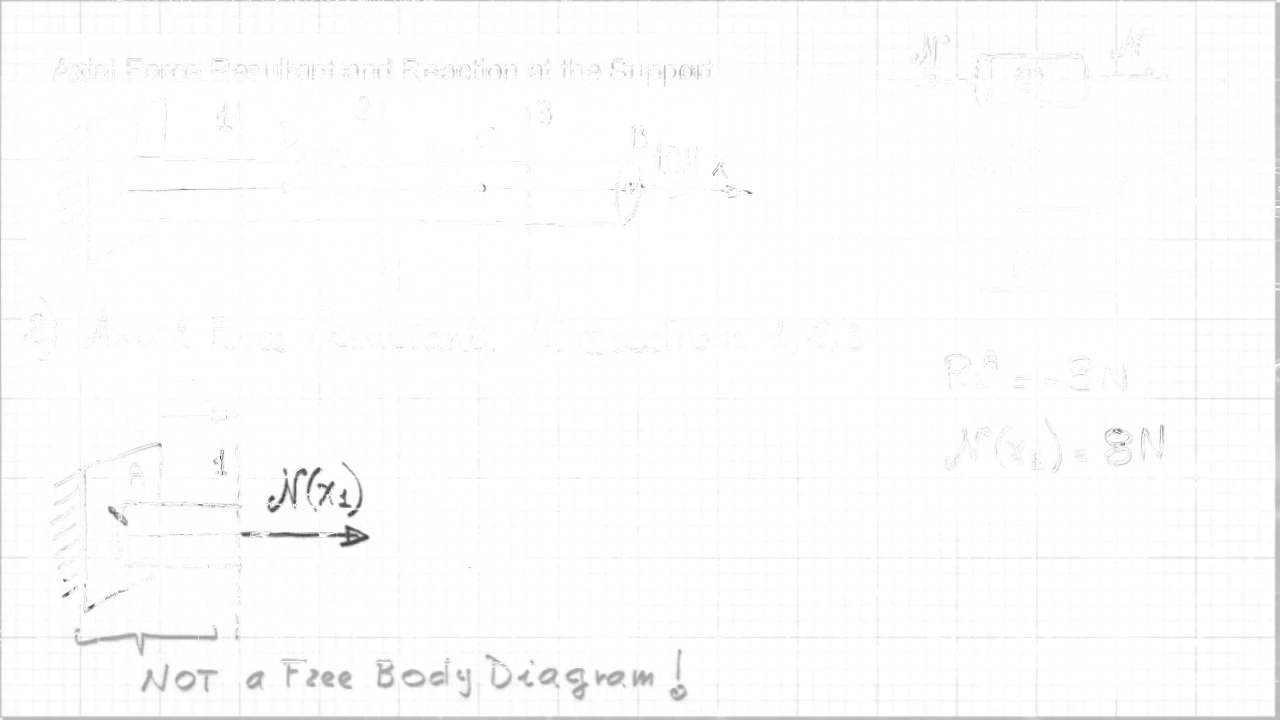 Axial Force Resultant and Reaction at the Support
N N
1 2 3
D C B 10N x
2) Axial Force Resultant, N, @ section 1,2,3
RxA = -8N
N(x1) = 8N
A 1 N(x1)
NOT a Free Body Diagram!